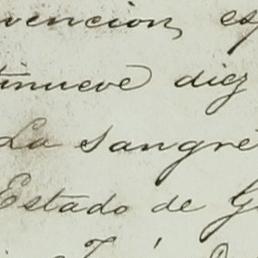 vencion, es
tinueve diez
La sangre
Estado de G